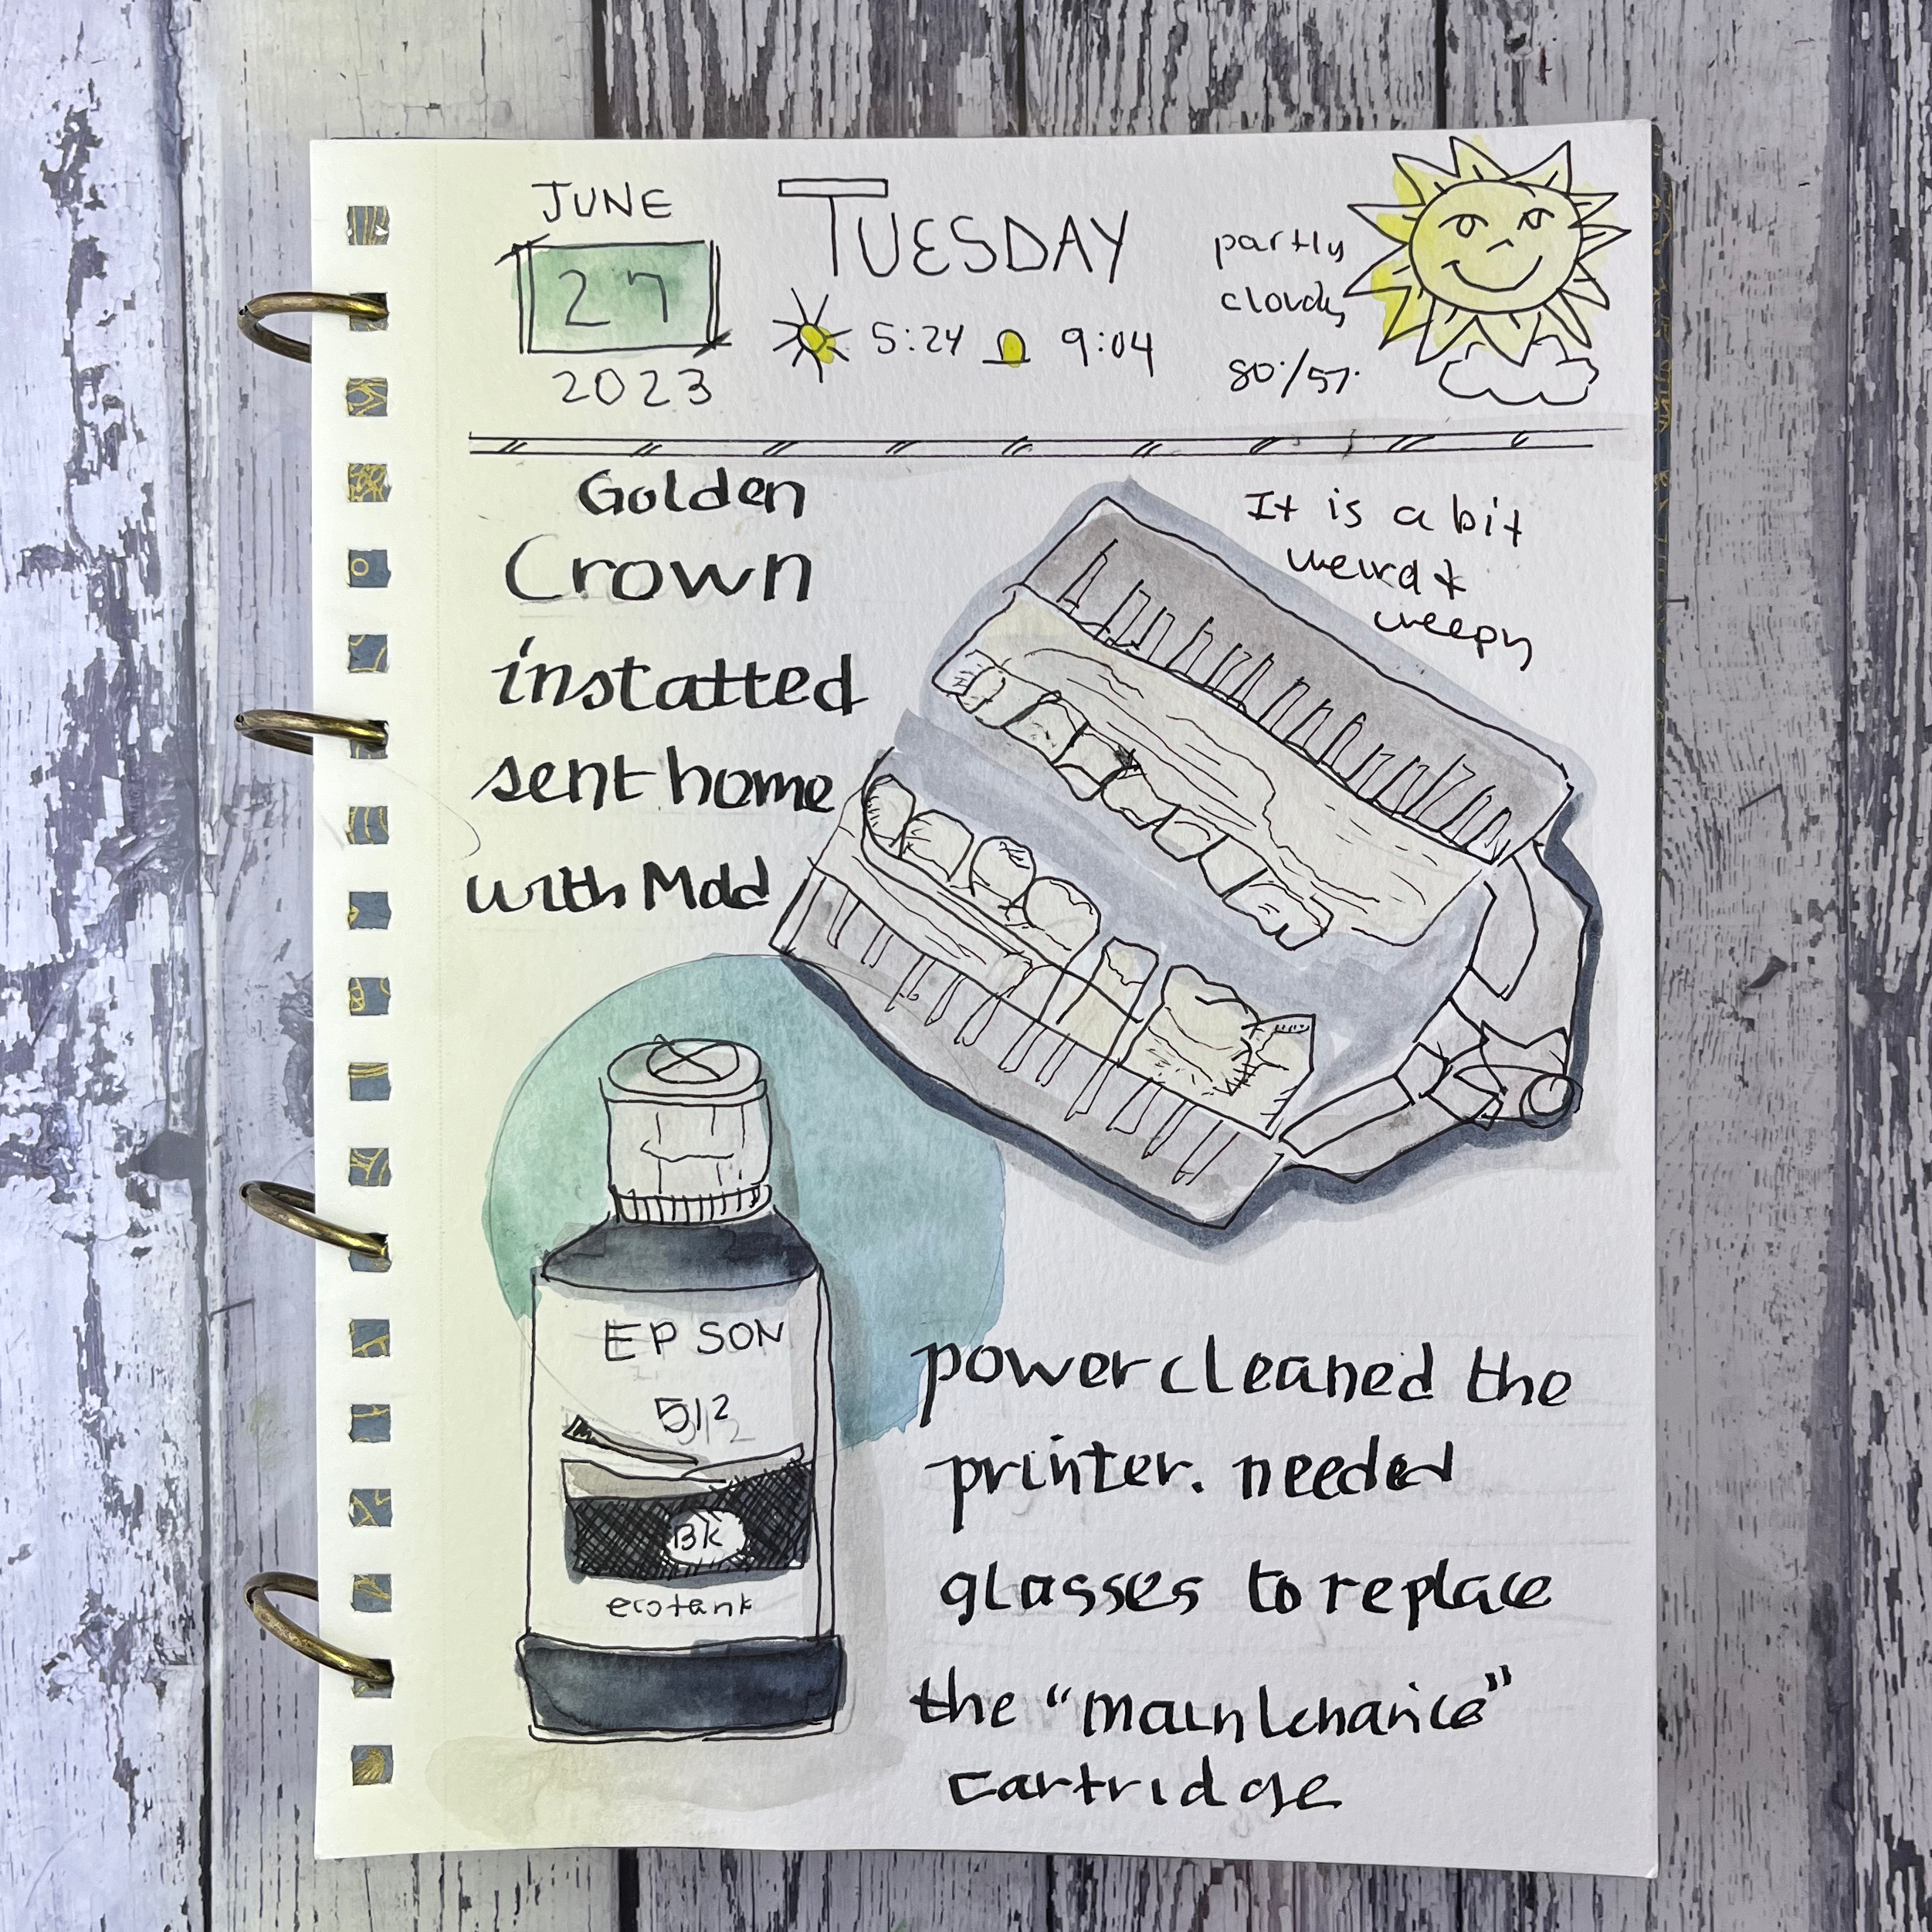 JUNE
27
2023
TUESDAY
5:24 9:04
partly
cloudy
80°/57°
Golden
Crown
installed
sent home
with Mold
It is a bit
weird &
creepy
EPSON
512
BK
ecotank
power cleaned the
printer. needed
glasses to replace
the "maintenance"
cartridge